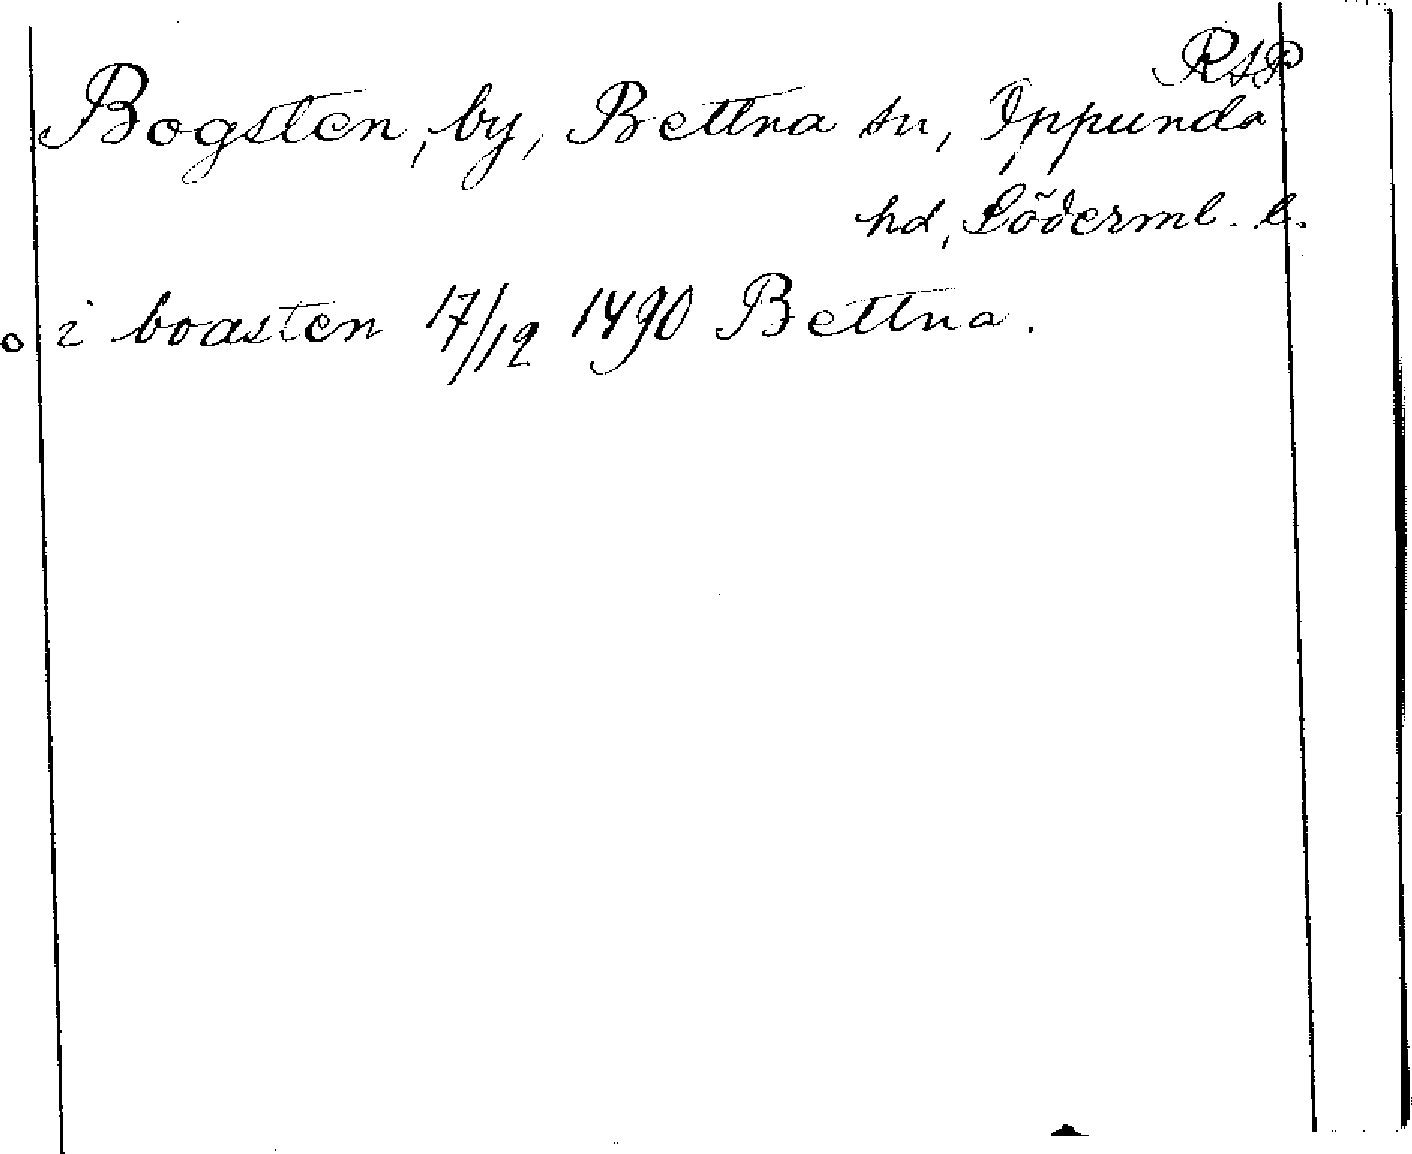 RAP
Bogsten, by, Bettna sn, Oppunda
hd, Söderml. l.
o i boasten 17/12 1490 Bettna.